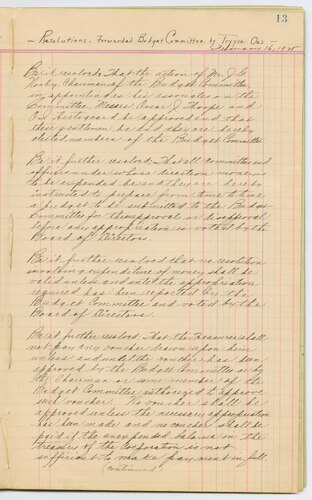 13
Resolutions - Forwarded Budget Committee by
February 16, 1925
Be it resolved: That the action of Mr. J. G.
Chairman of the Budget Committee
in appointing as his associates in the
Committee Messrs Oscar J. Thorpe and
be approved and that
these gentlemen be and they are hereby
elected members of the Budget Committee.
Be it further resolved: That all Committees and
officers under whose direction money is
to be expended be and they are hereby
instructed to prepare from time to time
a budget to be submitted to the Budget
Committee for their approval or disapproval
before any appropriation is voted by the
Board of Directors.
Be it further resolved that no resolution
involving expenditure of money shall be
valid unless and until the appropriation
required has been reported by the
Budget Committee and voted by the
Board of Directors.
Be it further resolved that the Treasurer shall
not pay any voucher drawn upon him
unless and until the voucher has been
approved by the Budget Committee or by
its Chairman or some member of the
Budget Committee authorized to approve
such voucher. No voucher shall be
approved unless the necessary appropriation
has been made and no voucher shall be
paid if the unexpended balance in the
treasury of the Corporation is not
sufficient to make payment in full
(continued)